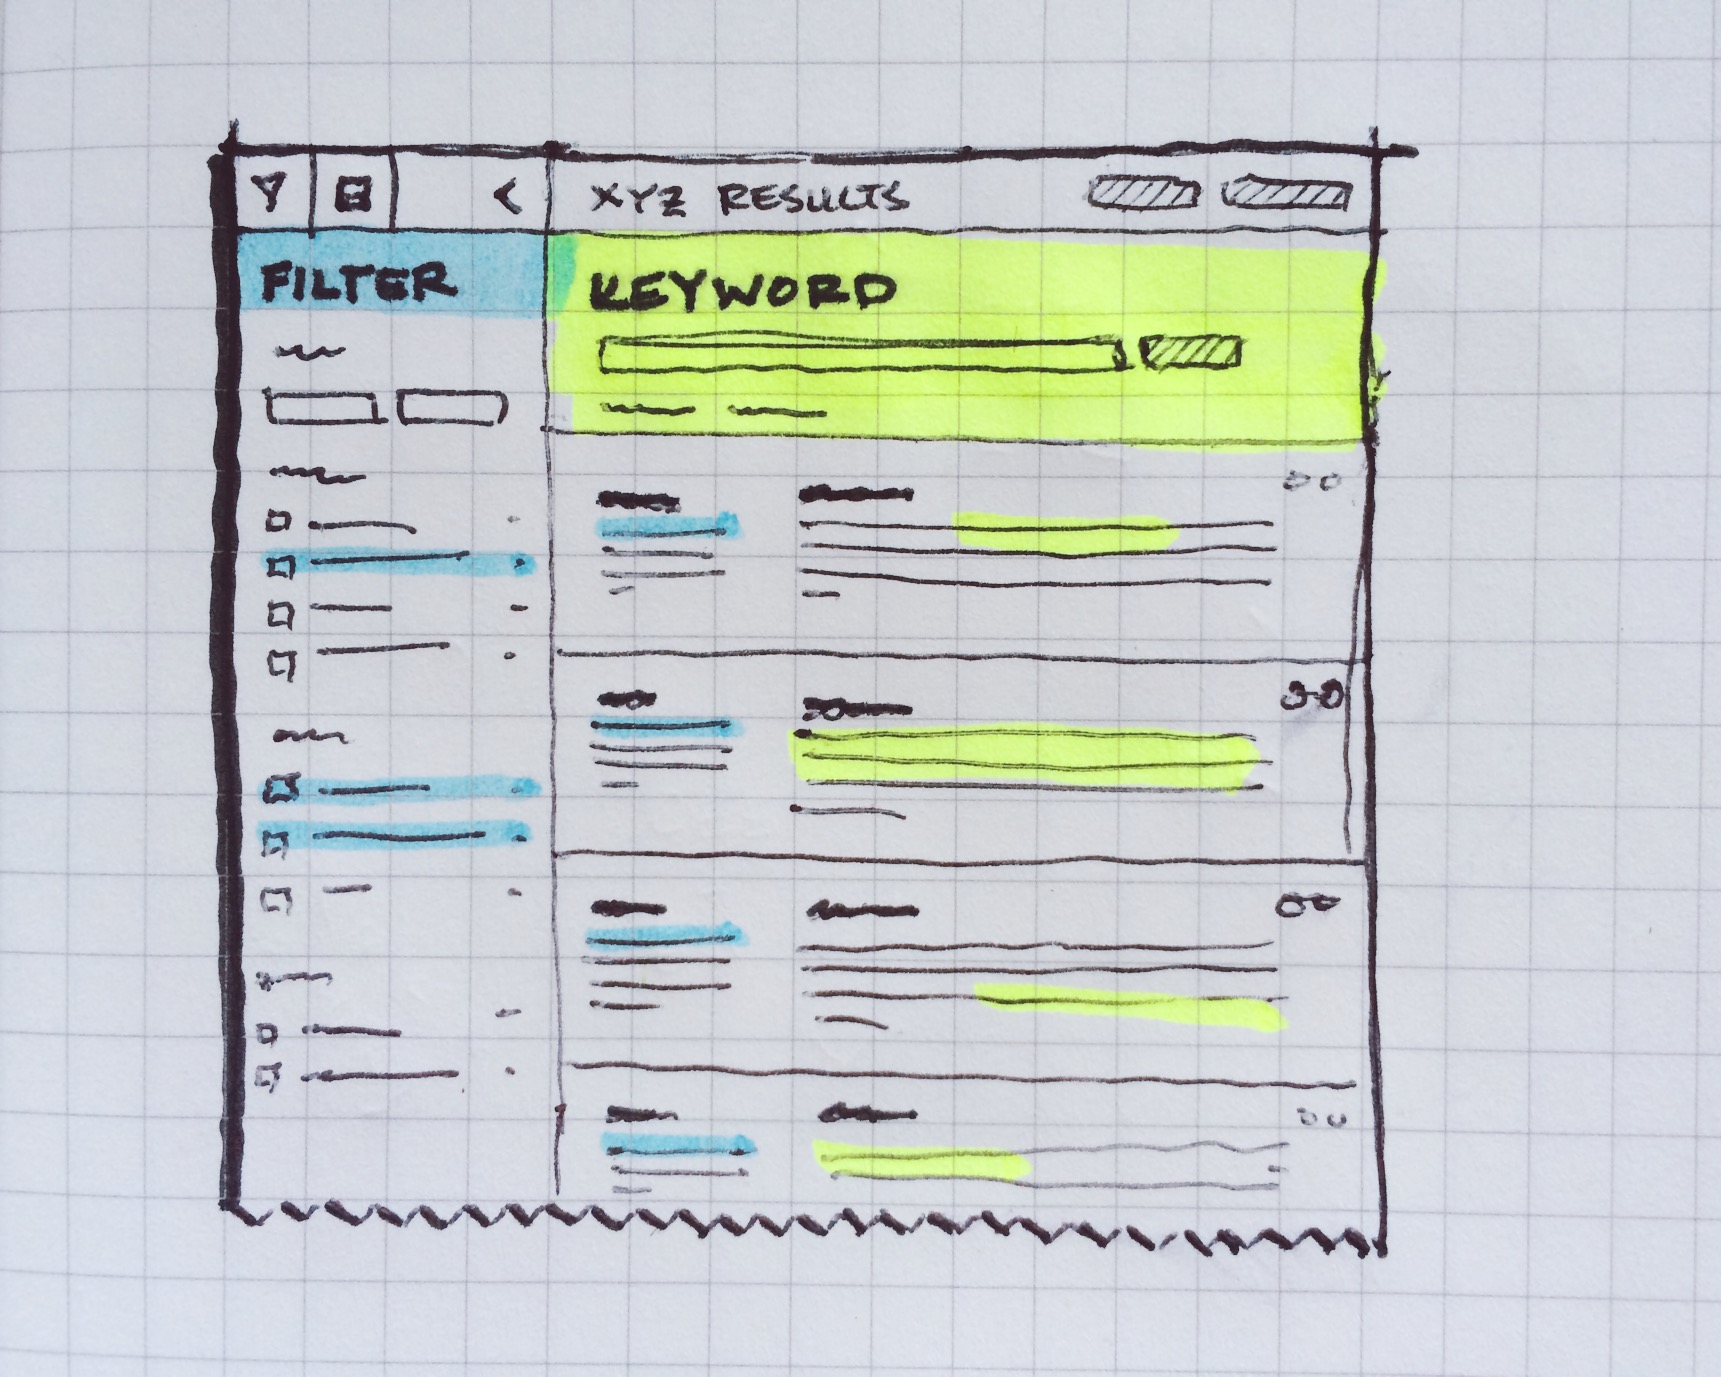 XYZ RESULTS
FILTER
KEYWORD